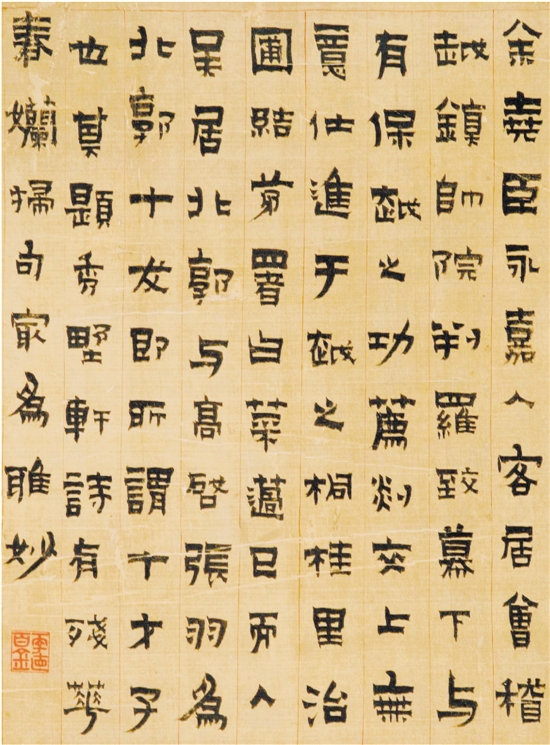 余堯臣永嘉人客居會稽
越鎮帥院判羅致幕下与
有保越之功薦剡交上無
意仕進于越之桐桂里治
圃結茅署曰菜薖已而入
吳居北郭与高啓張羽為
北郭十友即所謂十才子
也其題秀野軒詩有殘華
春孏掃句冣為雅妙